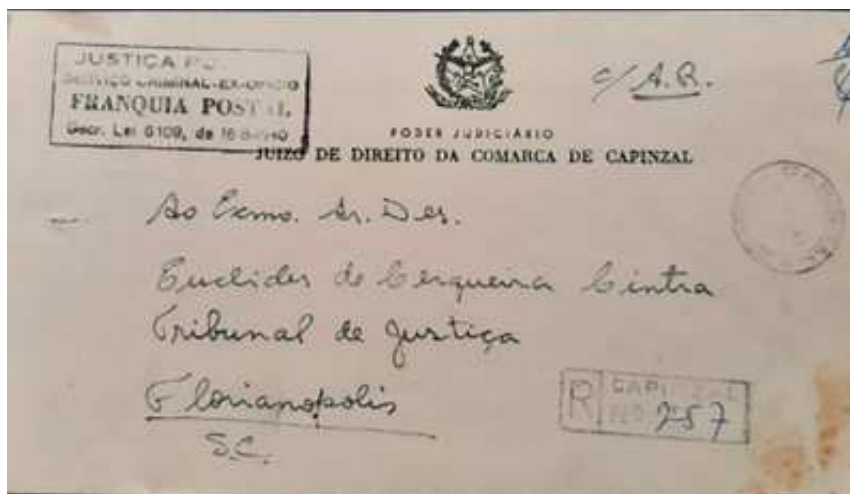 JUSTIÇA
SERVIÇO CRIMINAL-EX-OFICIO
FRANQUIA POSTAL
Decr. Lei 6109, de 16
c/ A.R.
PODER JUDICIÁRIO
JUIZO DE DIREITO DA COMARCA DE CAPINZAL
Ao Exmo. Sr. Des.
Euclides de Cerqueira Cintra
Tribunal de Justiça
Florianopolis
S.C.
R CAPINZAL
Nº 257